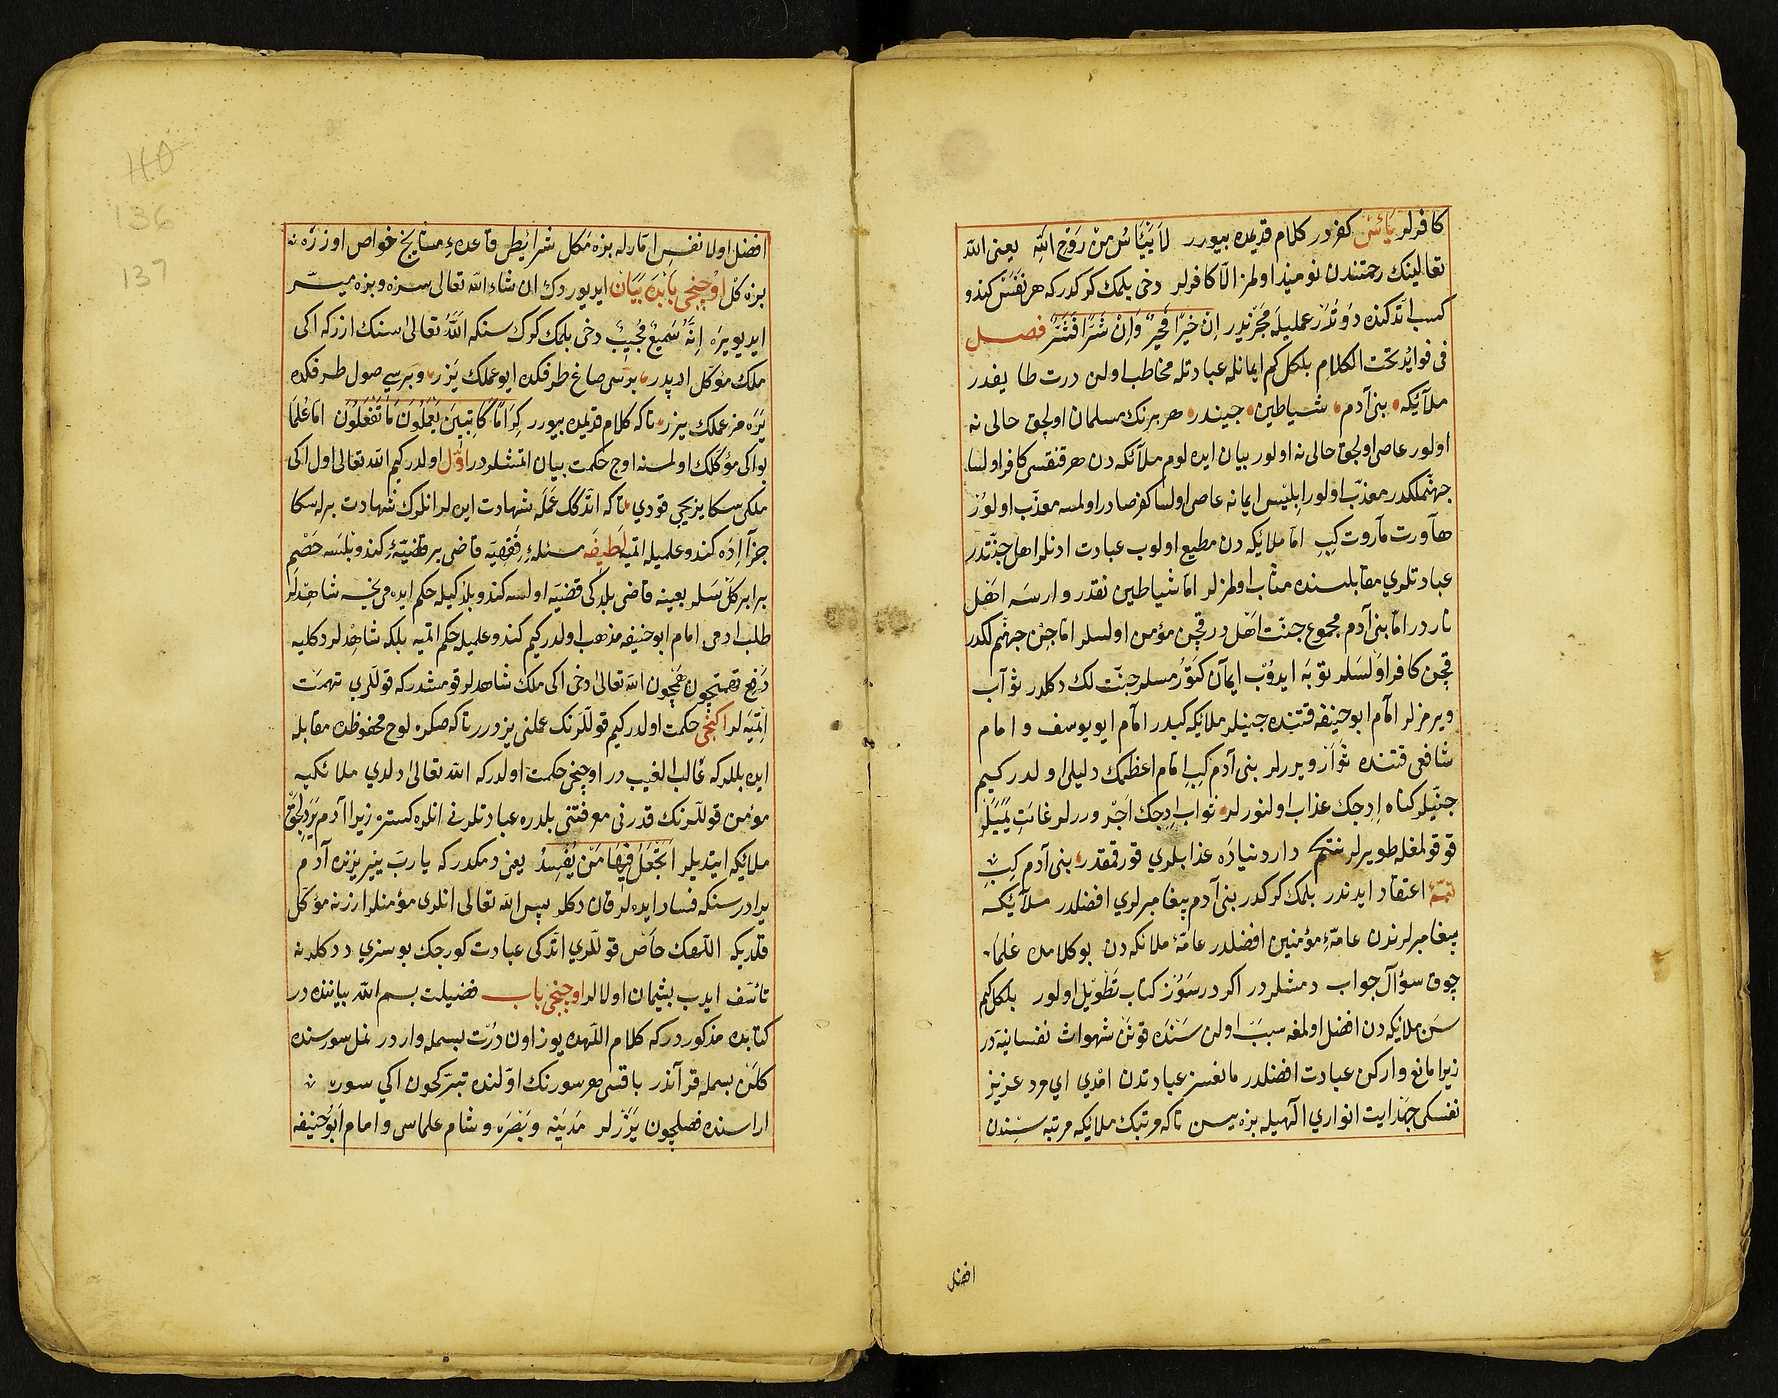 كافرلر يائس كفردر كلام قديمده بيورر لا ييأس من روح الله يعنى الله
تعالينك رحمتندن نوميد اولمز الا كافرلر دخى بلمك كركدركه هر نفس كندو
كسب اتدكنده دوتلر عمليله مجزيدر ان خيرا فخير وان شرا فشر فصل
فى فوائد تحت الكلام بلكل كم ايمانله عبادتله مخاطب اولن درت طايفدر
ملآئكه بنى آدم شياطين جيندر هر برنك مسلمان اولجق حالى نه
اولور عاصى اولجق حالى نه اولور بيان ايده لوم ملآئكه دن هر قنقسى كافر اولسا
جهنملكدر معذب اولور ابليس ايمانه عاصى اولسا كفر صادر اولمسه معذب اولور
هاروت ماروت كبى اما ملايكه دن مطيع اولوب عبادت ادنلر اهل جنتدر
عبادتلرى مقابلسنده مثاب اولمزلر اما شياطين نقدر وارسه اهل
ناردر اما بنى آدم مجموع جنت اهلدر قچن مؤمن اولسلر اما جن جهنملكدر
قچن كافر اولسلر توبه ايدوب ايمان كتورمسلر جنت لك دكلدر ثوآب
ويرمزلر امام ابو حنيفه قتنده جينلر ملايكه كبدر امام ابو يوسف و امام
شافعى قتنده ثواب ويررلر بنى آدم كبى امام اعظمك دليلى اولدر كيم
جنيلر كناه ادجك عذاب اولنورلر ثواب ادجك اجر وررلر غايت
قوقولمغله طويرلر دار دنياده عذابلرى قورقمقدر بنى آدم كبى
اعتقاد ايدندر بلمك كركدر بنى آدم پيغامبرلرى افضلدر ملآئكه
پيغامبرلرندن عامۀ مؤمنين افضلدر عامۀ ملائكه دن بو كلامده علما
چوق سؤال جواب دمشلردر اكر درسوز كتاب تطويل اولور بلكل كيم
سن ملايكه دن افضل اولمغه سبب اولن سنده قونن شهوات نفسانيه در
زيرا مانع واركن عبادت افضلدر مانعسز عبادتدن امدى اى مرد عزيز
نفسكى جهد ايت انوارى الهيله بزه سن تاكه مرتبك ملايكه مرتبه سندن
افضل
افضل اولا نفس اماره له بزه مكل شرائيطى قاعدۀ مشايخ خواص اوزره نه
بزه كل اوچنجى بابده بيان ايديوردك ان شاء الله تعالى سزه و بزه ميسر
ايديويره انه سميع مجيب دخى بلمك كرك سنكه الله تعالى سنك ازركه اكى
ملك مؤكل اديدر برسى صاغ طرفكده ايو عملك يزر و برسى صول طرفكده
يره مز عملك يزر تاكه كلام قديمده بيورر كراما كاتبين يعلمون ما تفعلون اما علما
بو اكى مؤكلك اولمسنه اوچ حكمت بيان اتمشلردر اول اولدركيم الله تعالى اول اكى
ملكى سكا يزيجى قودى تاكه اتدكك عمله شهادت ايدلر انلرك شهادت برله سكا
جزآ اده كندو علميله اتميه لطيفه مسئلۀ فقهيه قاضى بر قضيۀ كندو بلسه خصم
برابر كلسلر بعينه قاضى بلدكى قضيه اولسه كندو بلدكيله حكم ايده مى يخسه شاهدلر
طلب ادمى امام ابو حنيفه مذهب اولدركيم كندو علميله حكم اتميه بلكه شاهدلر دكليه
دفع تهمتيچون همچون الله تعالى دخى اكى ملك شاهدلر قومشدركه قوللرى تهمت
اتميه لر اكنجى حكمت اولدركيم قوللرنك عملنى يزدرر تاكه صكره لوح محفوظده مقابله
ايده بللركه عالم الغيب در اوچنجى حكمت اولدركه الله تعالى دلدى ملائكيه
مؤمن قوللرنك قدرنى معرفتنى بلدره عبادتلرنى انلره كستره زيرا آدم يردلجق
ملايكه ايتديلر اتجعل فيها من يفسد يعنى دمكدركه يا رب ير يزنده آدم
يرادرسنكه فساد ايده لر قان دكلر پس الله تعالى انلرى مؤمنلر ازرنه مؤكل
قلديكه اللهك خاص قوللرى اتدكى عبادت كورجك بو سزى ددكلرنه
تأسف ايدب پشمان اولالر اوچنجى باب فضيلت بسم الله بياننده در
كتابده مذكوردركه كلام اللهده يوز اون درت بسمله واردر نمل سورسنده
كلن بسمله قرآندر باقيسى هر سورنك اولنده تبركچون اكى سوره
اراسنده فصلچون يزرلر مدينه و بصره و شام علماسى و امام ابو حنيفه
40
136
137